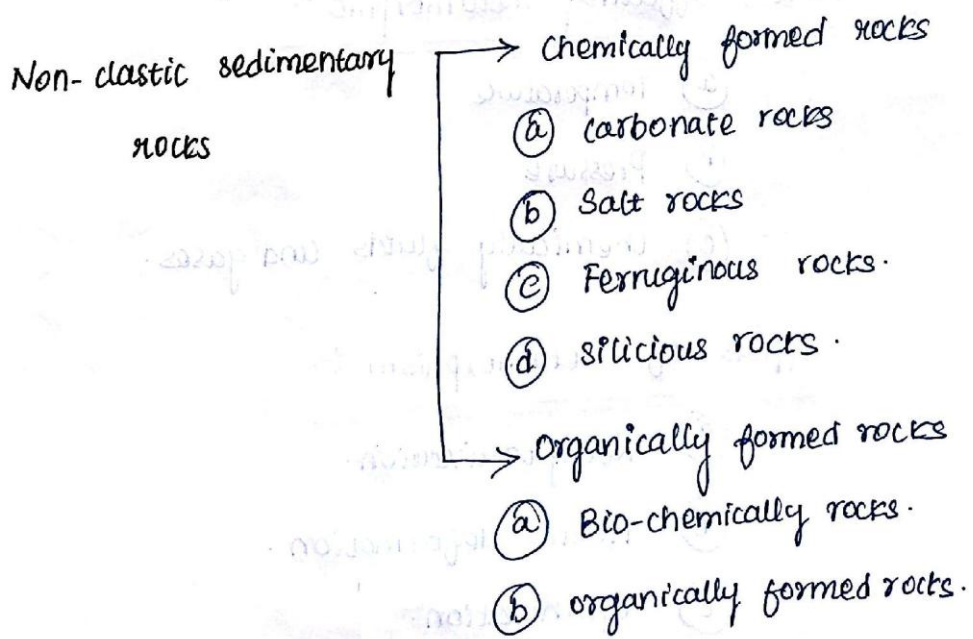 Non-clastic sedimentary
rocks
Chemically formed rocks
(a) carbonate rocks
(b) Salt rocks
(c) Ferruginous rocks.
(d) silicious rocks.
Organically formed rocks
(a) Bio-chemically rocks.
(b) organically formed rocks.